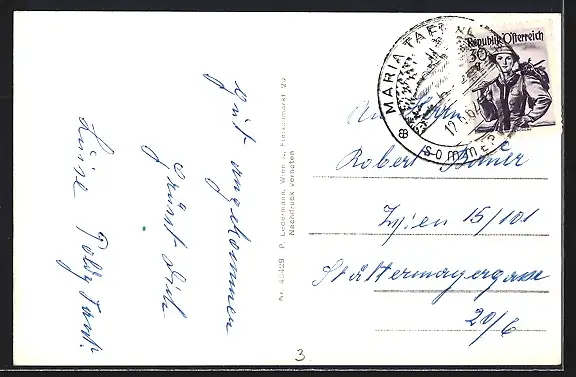 Gut angekommen
grüsst Dich
Luise Poldy Tant.
Nr. 45429 P. Ledermann, Wien I., Fleischmarkt 20
Nachdruck verboten
MARIA TAFERL
Republik Österreich
30
An Herrn
Robert
Wien 15/101
Stättermayergasse
20/6
3